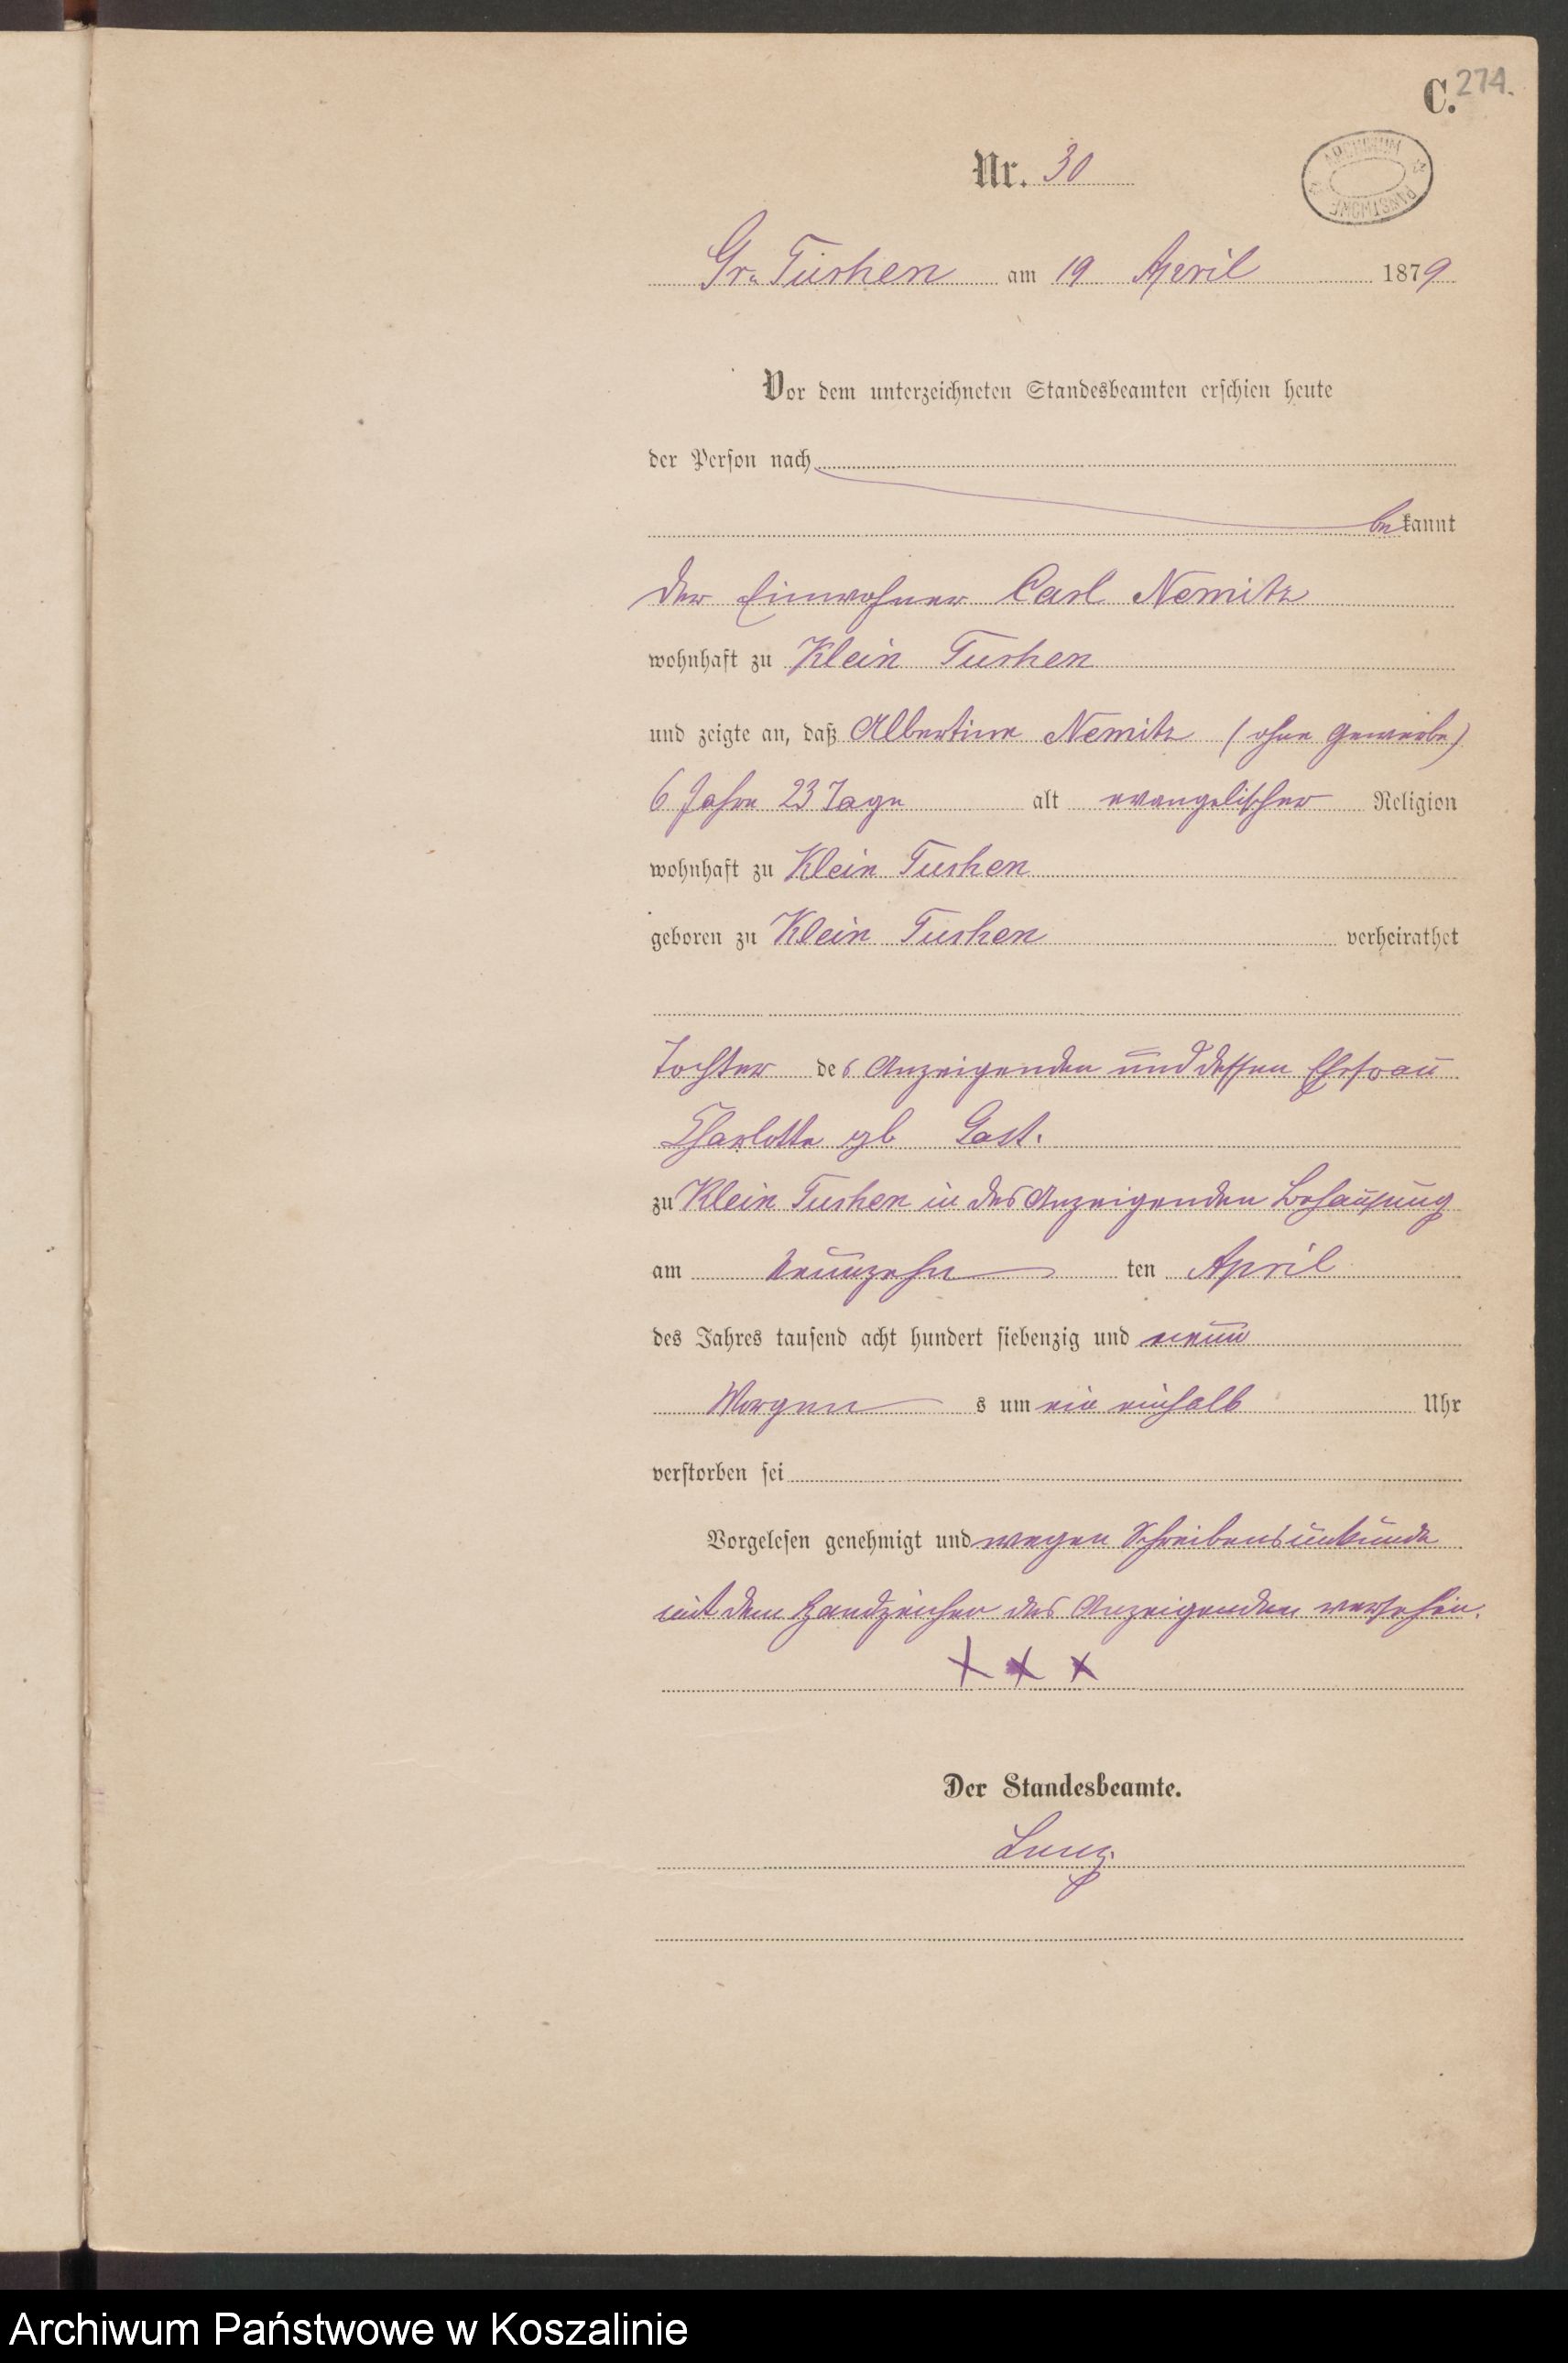 C. 274.
ARCHIWUM PAŃSTWOWE
Nr. 30
Gr. Tuchen am 19 April 1879
Vor dem unterzeichneten Standesbeamten erschien heute
der Person nach
bekannt
der Einwohner Carl Nemitz
wohnhaft zu Klein Tuchen
und zeigte an, daß Albertine Nemitz (ohne Gewerbe)
6 Jahre 23 Tage alt evangelischer Religion
wohnhaft zu Klein Tuchen
geboren zu Klein Tuchen verheirathet
Tochter des Anzeigenden und dessen Ehefrau
Charlotte gb Gast.
zu Klein Tuchen in des Anzeigenden Behausung
am neunzehn ten April
des Jahres tausend acht hundert siebenzig und neun
Morgens um ein einhalb Uhr
verstorben sei
Vorgelesen genehmigt und wegen Schreibensunkunde
mit dem Handzeichen des Anzeigenden versehen.
X X X
Der Standesbeamte.
Archiwum Państwowe w Koszalinie